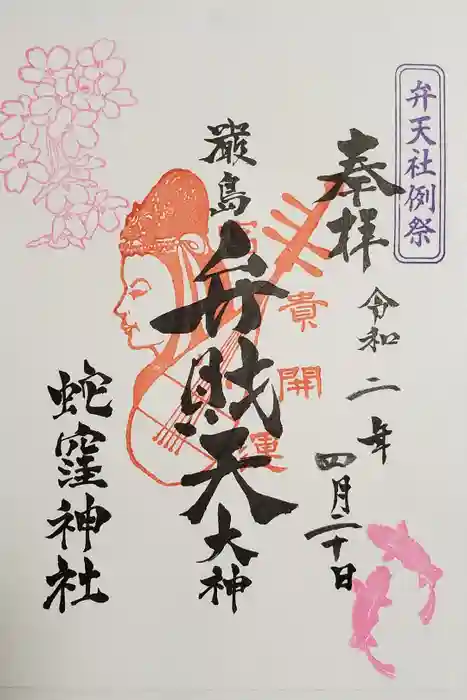 弁天社例祭
奉拝
令和二年
四月二十日
富貴開運
厳島
弁財天
大神
蛇窪神社